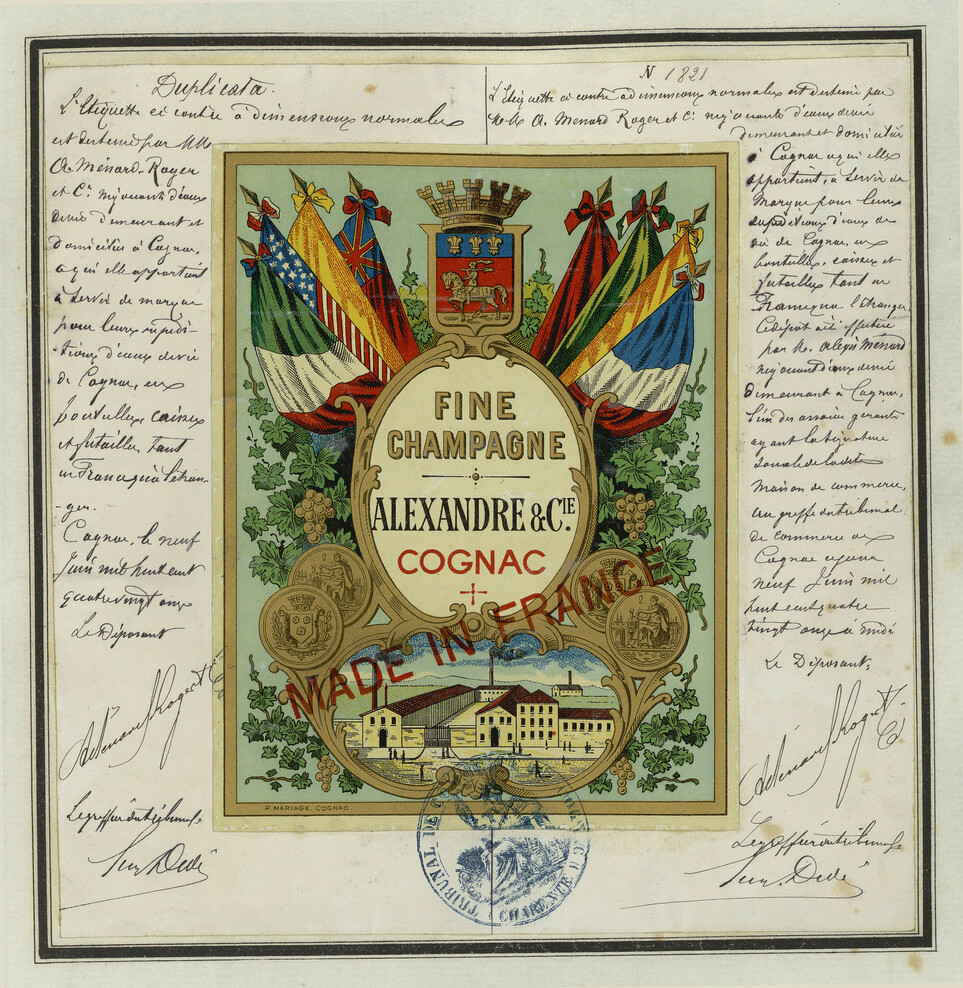 Duplicata.
L'Etiquette ci contre à dimensions normales
est destinée par MM
A. Ménard-Roger
et Cie négociants d'eaux
de vie demeurant et
domiciliés à Cognac,
à qui elle appartient
à servir de marque
pour leurs expédi-
tions d'eaux de vie
de Cognac, en
bouteilles, caisses
et futailles tant
en France qu'à l'étran-
-ger.
Cognac, le neuf
Juin mil huit cent
quatre vingt onze
Le Déposant
Le greffier du tribunal
N 1821
L'Etiquette ci contre à dimensions normales est destinée par
MM A. Menard Roger et Cie négociants d'eaux de vie
demeurant et domiciliés
à Cognac à qui elle
appartient, à servir de
Marque pour leurs
expéditions d'eaux de
vie de Cognac, en
bouteilles, caisses et
futailles tant en
France qu'à l'étranger
Ce dépôt a été effectué
par M. Alexis Ménard
négociant d'eaux de vie
demeurant à Cognac,
l'un des associés gérants
ayant la signature
sociale de la dite
maison de commerce,
au greffe du tribunal
de commerce de
Cognac ce jour
neuf Juin mil
huit cent quatre
vingt onze à midi
Le Déposant,
Le greffier du tribunal
FINE
CHAMPAGNE
ALEXANDRE & CIE.
COGNAC
MADE IN FRANCE
P. MARIAGE, COGNAC.
TRIBUNAL DE
CHARENTE